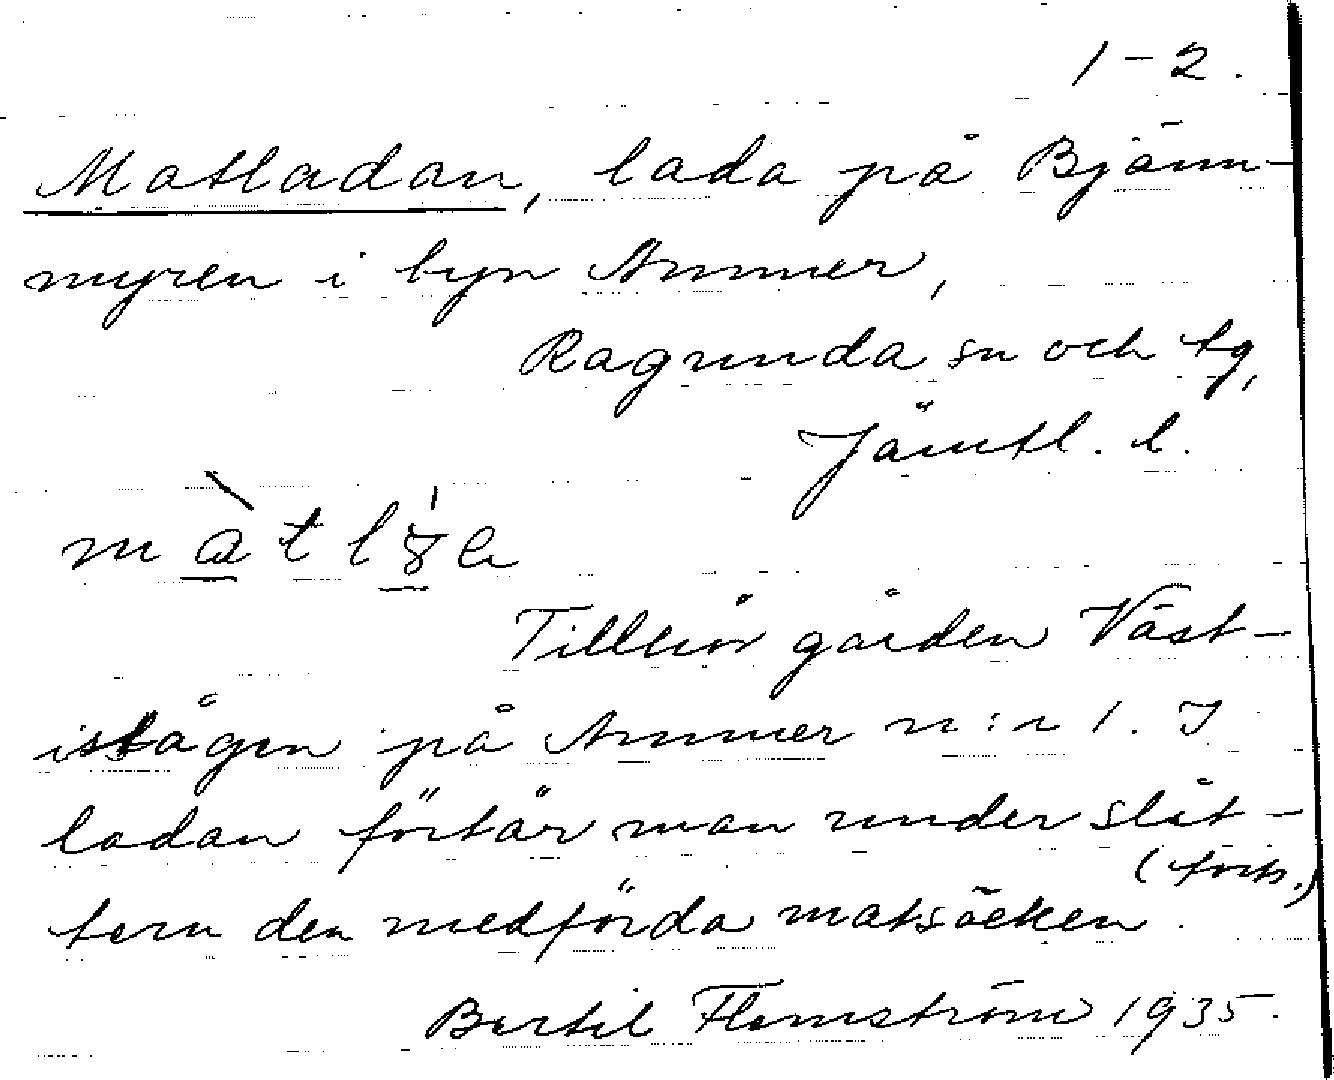 1-2.
Matladan, lada på Björn-
myren i byn Ammer,
Ragunda sn och tg,
Jämtl. l.
Tillhör gården Väst-
istågen på Ammer n:r 1. I
ladan förtär man under slåt-
(forts.)
tern den medförda matsäcken.
Bertil Flemström 1935.